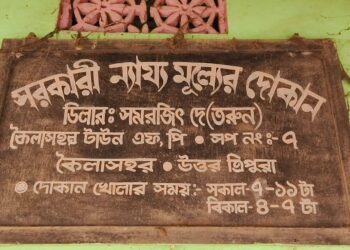 সরকারী ন্যায্য মূল্যের দোকান
ডিলারঃ সমরজিৎ দে(তরুন)
কৈলাসহর টাউন এফ,পি • সপ নং:- ৭
কৈলাসহর • উত্তর ত্রিপুরা
● দোকান খোলার সময়:- সকাল-৭-১১টা
বিকাল-৪-৭টা